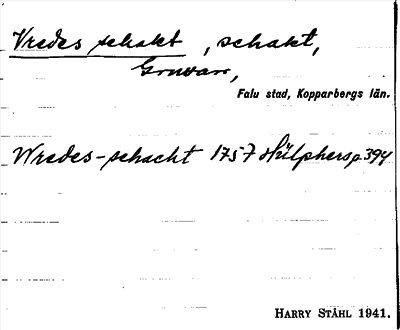 Vredes schakt, schakt,
Gruvan,
Falu stad, Kopparbergs län.
Wredes-schacht 1757 Hülphers p. 394
HARRY STÅHL 1941.